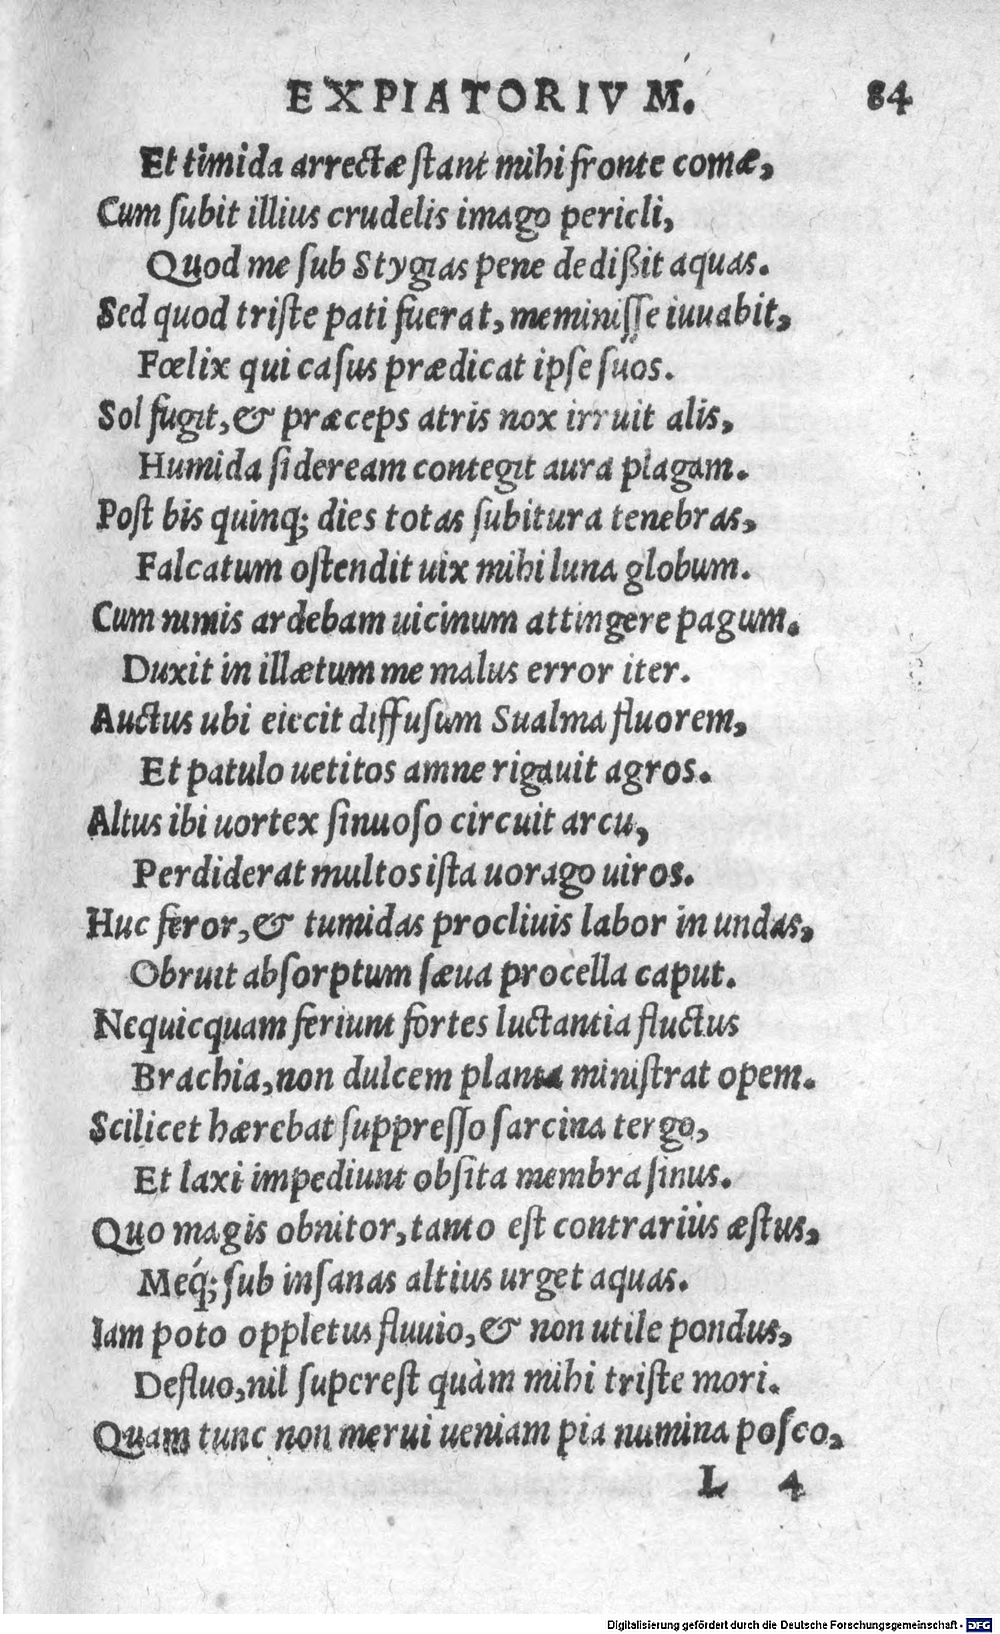 EXPIATORIVM. 84
Et timida arrectæ ſtant mihi fronte comæ,
Cum ſubit illius crudelis imago pericli,
Quod me ſub Stygias pene dedißit aquas.
Sed quod triſte pati fuerat, meminiſſe iuuabit,
Fœlix qui caſus prædicat ipſe ſuos.
Sol fugit, & præceps atris nox irruit alis,
Humida ſideream contegit aura plagam.
Poſt bis quinq; dies totas ſubitura tenebras,
Falcatum oſtendit uix mihi luna globum.
Cum nimis ardebam uicinum attingere pagum.
Duxit in illætum me malus error iter.
Auctus ubi eiecit diffuſum Sualma fluorem,
Et patulo uetitos amne rigauit agros.
Altus ibi uortex ſinuoſo circuit arcu,
Perdiderat multos iſta uorago uiros.
Huc feror, & tumidas procliuis labor in undas,
Obruit abſorptum ſæua procella caput.
Nequicquam feriunt fortes luctantia fluctus
Brachia, non dulcem planta miniſtrat opem.
Scilicet hærebat ſuppreſſo ſarcina tergo,
Et laxi impediunt obſita membra ſinus.
Quo magis obnitor, tanto eſt contrarius æſtus,
Meq́; ſub inſanas altius urget aquas.
Iam poto oppletus fluuio, & non utile pondus,
Defluo, nil ſupereſt quàm mihi triſte mori.
Quam tunc non merui ueniam pia numina poſco,
L 4
Digitalisierung gefördert durch die Deutsche Forschungsgemeinschaft - DFG